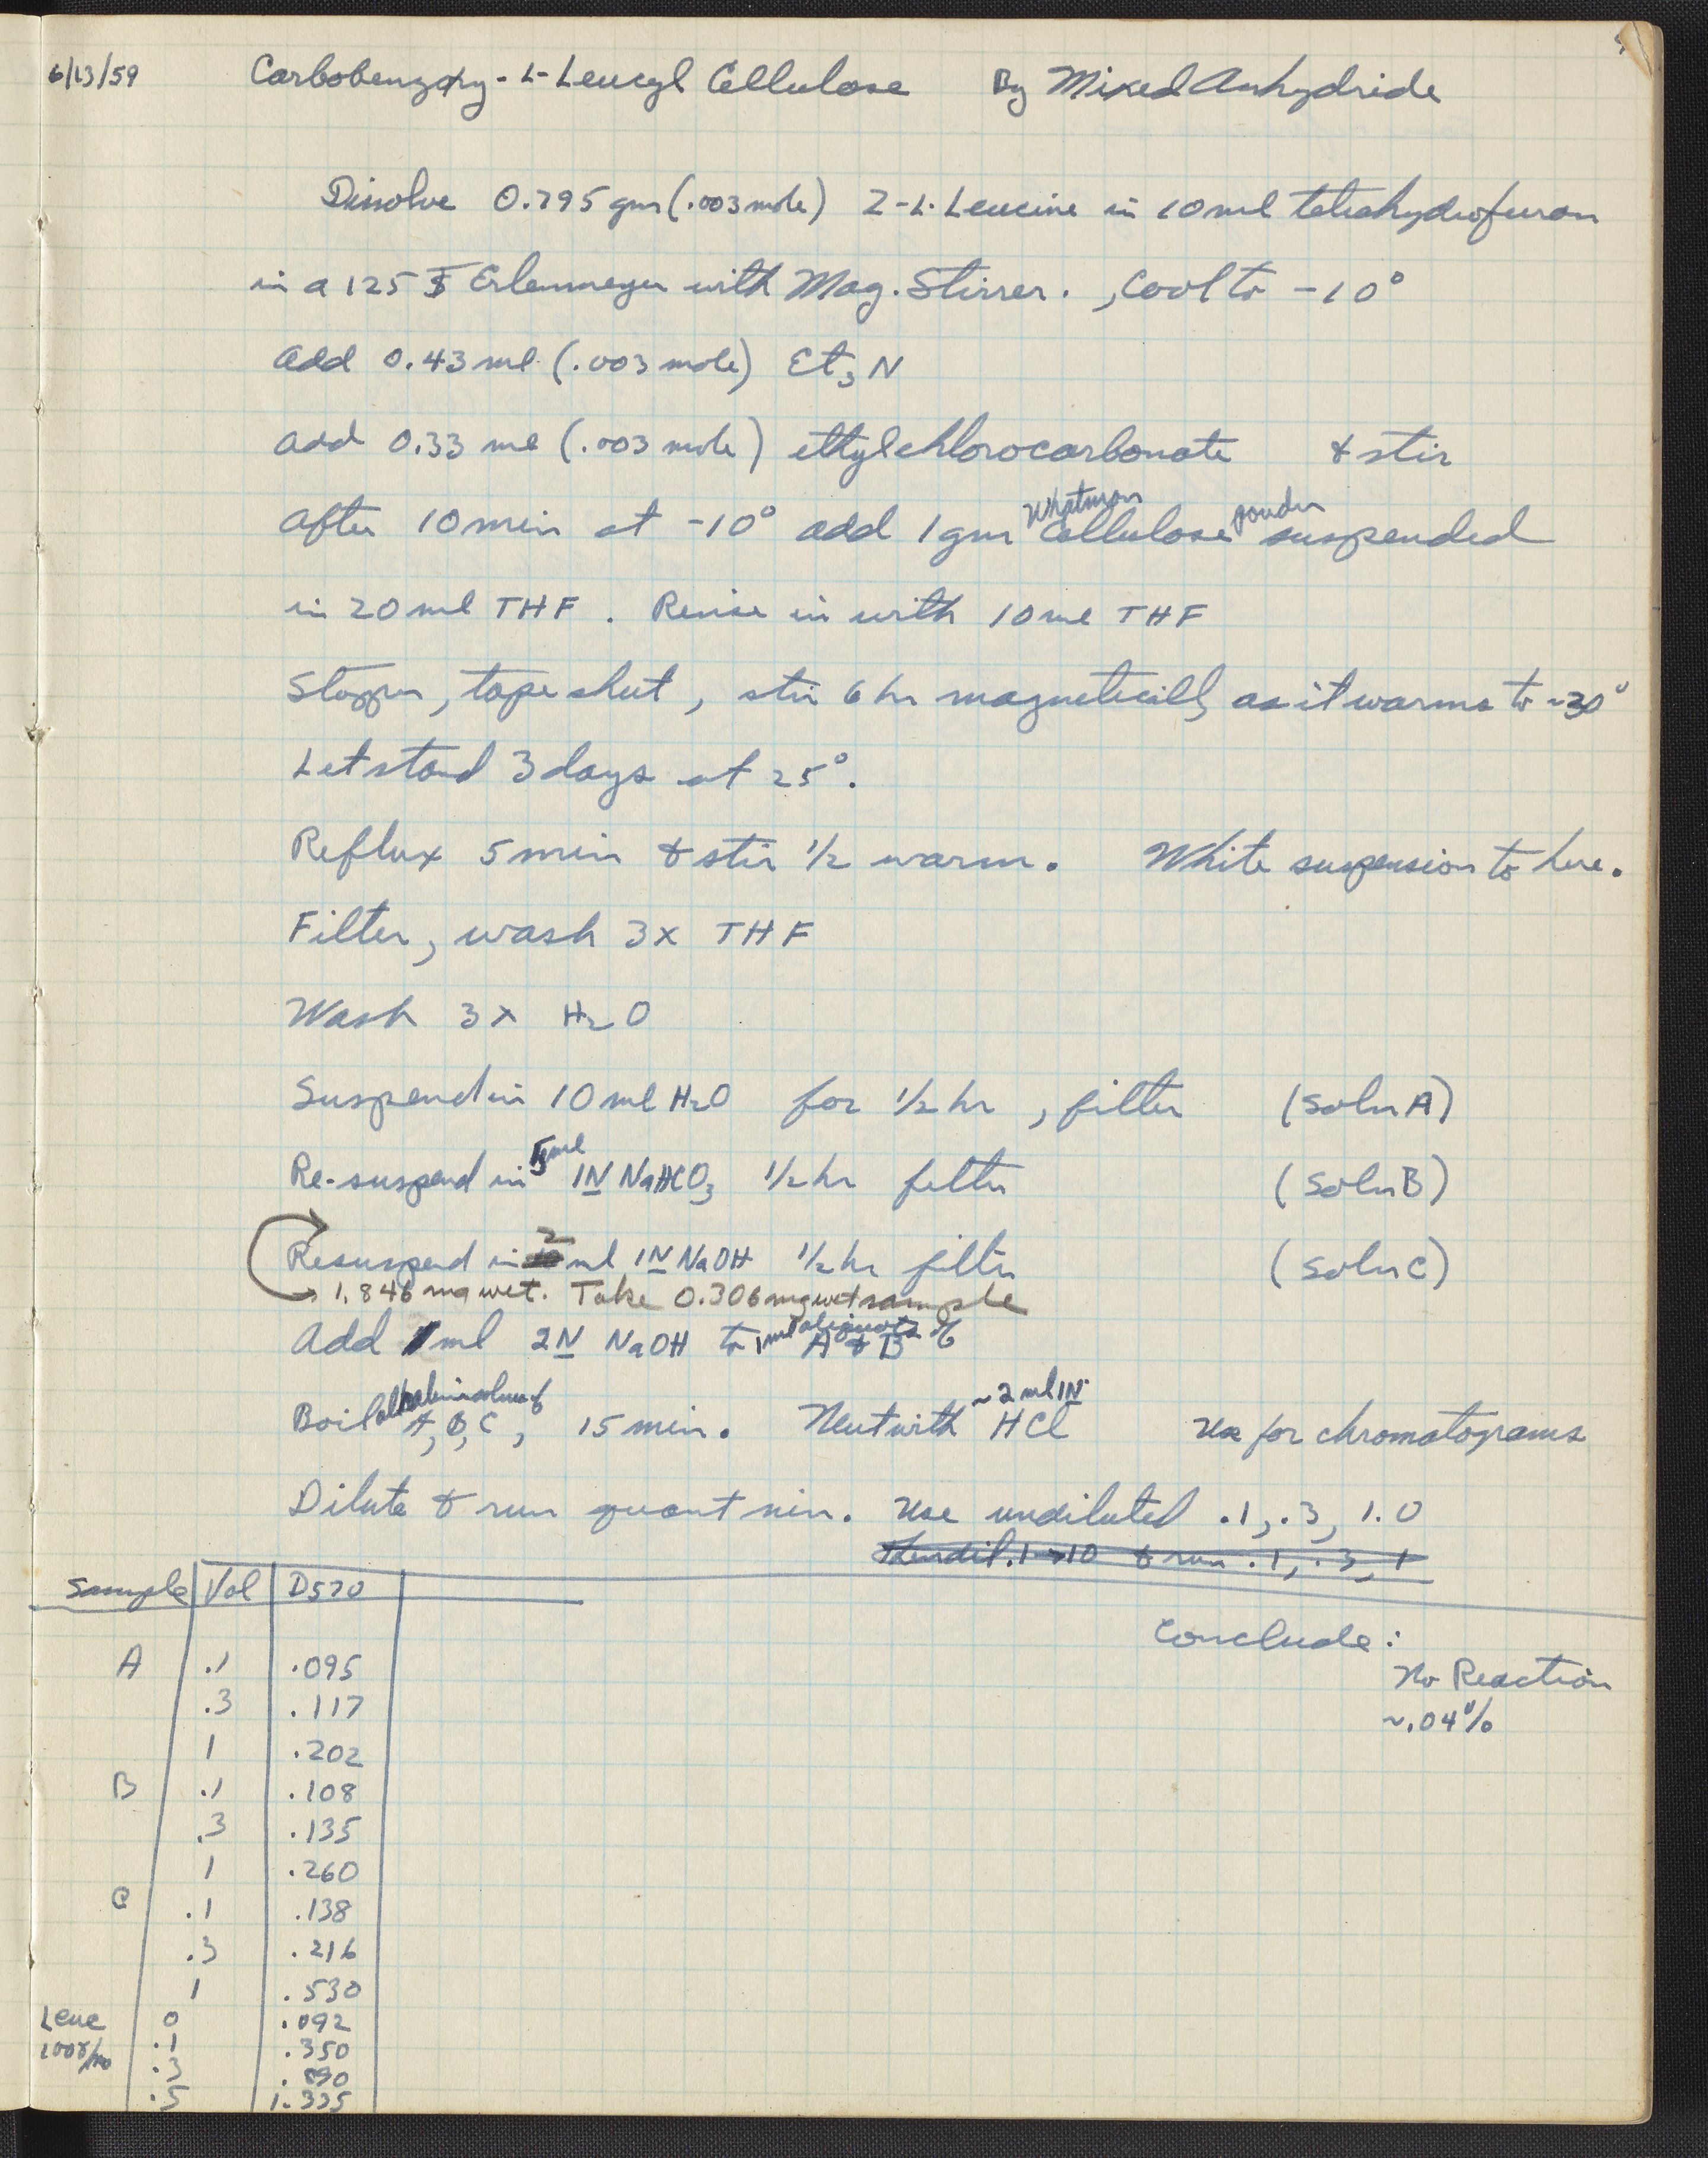 6/13/59 Carbobenzoxy-L-Leucyl Cellulose By Mixed Anhydride
Dissolve 0.795 gm (.003 mole) Z-L-Leucine in 10 ml tetrahydrofuran
in a 125 Erlenmeyer with Mag. Stirrer. , Cool to -10°
Add 0.43 ml (.003 mole) Et3N
Add 0.33 ml (.003 mole) ethylchlorocarbonate & stir
After 10 min at -10° add 1 gm Whatman Cellulose powder suspended
in 20 ml THF. Rinse in with 10 ml THF
Stopper, tape shut, stir 6 hr magnetically as it warms to ~30°
Let stand 3 days at 25°.
Reflux 5 min & stir 1/2 warm. White suspension to here.
Filter, wash 3x THF
Wash 3x H2O
Suspend in 10 ml H2O for 1/2 hr, filter (Soln A)
Re-suspend in 5 ml 1N NaHCO3 1/2 hr filter (Soln B)
Resuspend in 2 ml 1N NaOH 1/2 hr filter (Soln C)
→ 1.846 mg wet. Take 0.306 mg wet sample
Add 1 ml 2N NaOH to 1 ml aliquots of A & B
Boil alkaline solns of A, B, C, 15 min. Neut with ~2 ml 1N HCl Use for chromatograms
Dilute & run quant nin. Use undiluted .1, .3, 1.0
Then dil. 1→10 & run .1, .3, 1
Sample Vol D570
Conclude:
A .1 .095
No Reaction
.3 .117
~.04%
1 .202
B .1 .108
.3 .135
1 .260
C .1 .138
.3 .216
1 .530
Leuc 0 .092
100γ/ml .1 .350
.3 .890
.5 1.335